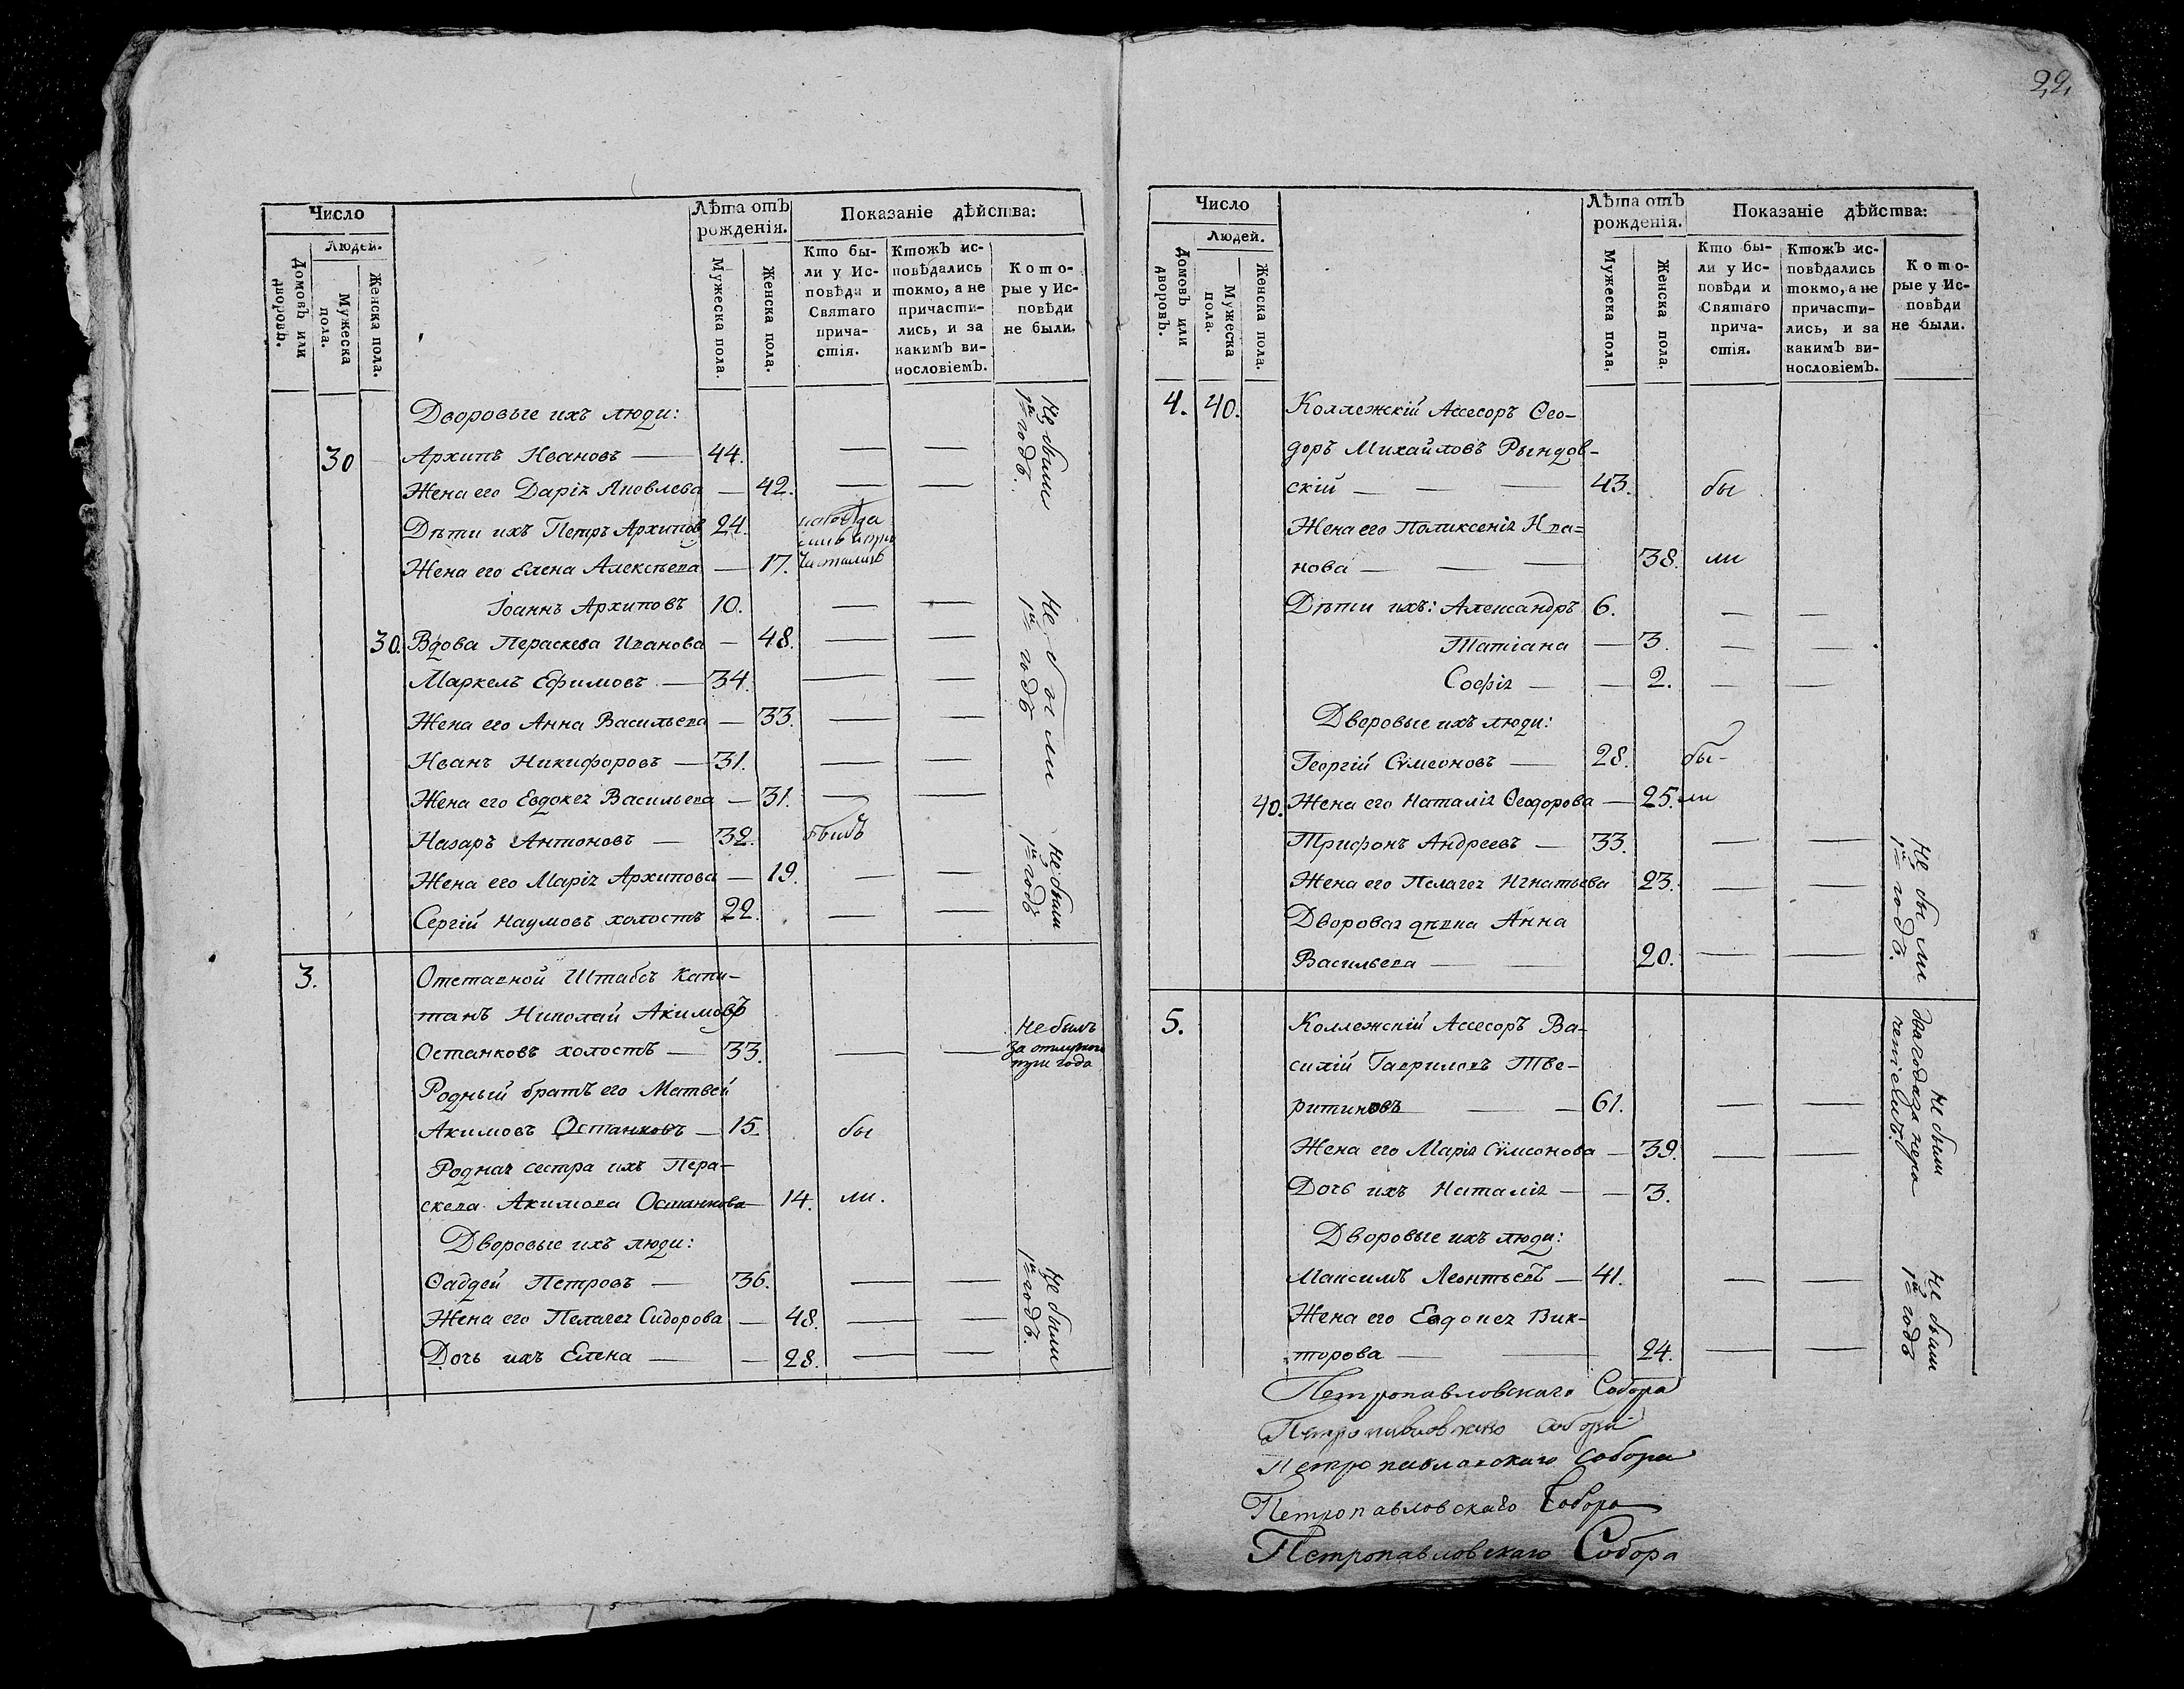 22.
Число
Людей.
Домовъ или дворовъ.
Мужеска пола.
Женска пола.
Лѣта отъ рожденія.
Мужеска пола.
Женска пола.
Показаніе дѣйства:
Кто были у Исповѣди и Святаго причастія.
Ктожъ исповѣдались токмо, а не причастились, и за какимъ винословіемъ.
Которые у Исповѣди не были.
Дворовые ихъ люди:
30 Архипъ Ивановъ — 44. — —
Жена его Дарія Яковлева — 42. — —
Не были 1й годъ.
Дѣти ихъ Петръ Архипов 24.
Жена его Елена Алексѣева — 17.
Іоаннъ Архиповъ 10. — —
30. Вдова Пераскева Иванова — 48. — —
Маркелъ Ефимовъ — 34. — —
Жена его Анна Васильева — 33. — —
Иванъ Никифоровъ — 31. — —
Жена его Евдокея Васильева — 31. — —
Не были 1й годъ
Назаръ Антоновъ — 32. былъ
Жена его Марія Архипова — 19. — —
Сергій Наумовъ холостъ 22. — —
Не были 1й годъ
3. Отставной Штабсъ Капи-
танъ Николай Акимовъ
Останковъ холостъ — 33. — — Не былъ за отлучкою три года
Родный братъ его Матвей
Акимовъ Останковъ — 15 бы
Родная сестра ихъ Пера-
скева Акимова Останкова — 14. ли.
Дворовые ихъ люди:
Ѳаддей Петровъ — 36. — —
Жена его Пелагея Сидорова — 48. — —
Дочь ихъ Елена — — 28. — —
Не были 1й годъ.
Число
Людей.
Домовъ или дворовъ.
Мужеска пола.
Женска пола.
Лѣта отъ рожденія.
Мужеска пола.
Женска пола.
Показаніе дѣйства:
Кто были у Исповѣди и Святаго причастія.
Ктожъ исповѣдались токмо, а не причастились, и за какимъ винословіемъ.
Которые у Исповѣди не были.
4. 40. Коллежскій Ассесоръ Ѳео-
доръ Михайловъ Рындов-
скій — — — 43. бы
Жена его Поликсенія Ива=
нова — — — 38. ли
Дѣти ихъ: Александръ 6. — —
Татіана — 3. — —
Софія — — 2. — —
Дворовые ихъ люди:
Георгій Сѵмеоновъ — 28. бы-
40. Жена его Наталія Ѳеодорова — 25. ли
Трифонъ Андреевъ — 33. — —
Жена его Пелагея Игнатьева 23. — —
Дворовая дѣвка Анна
Васильева — — 20. — —
Не были 1й годъ.
5. Коллежскій Ассесоръ Ва-
силій Гавриловъ Тве-
ритиновъ — — 61. — —
Жена его Марія Сѵмеонова — 39. — —
Дочь ихъ Наталія — — 3.
Не были два года за нерачениемъ.
Дворовые ихъ люди:
Максимъ Леонтьевъ — 41. — —
Жена его Евдокея Вик-
торова — — 24. — —
Не были 1й годъ
Петропавловскаго Собора
Петропавловскаго Собора
Петропавловскаго Собора
Петропавловскаго Собора
Петропавловскаго Собора